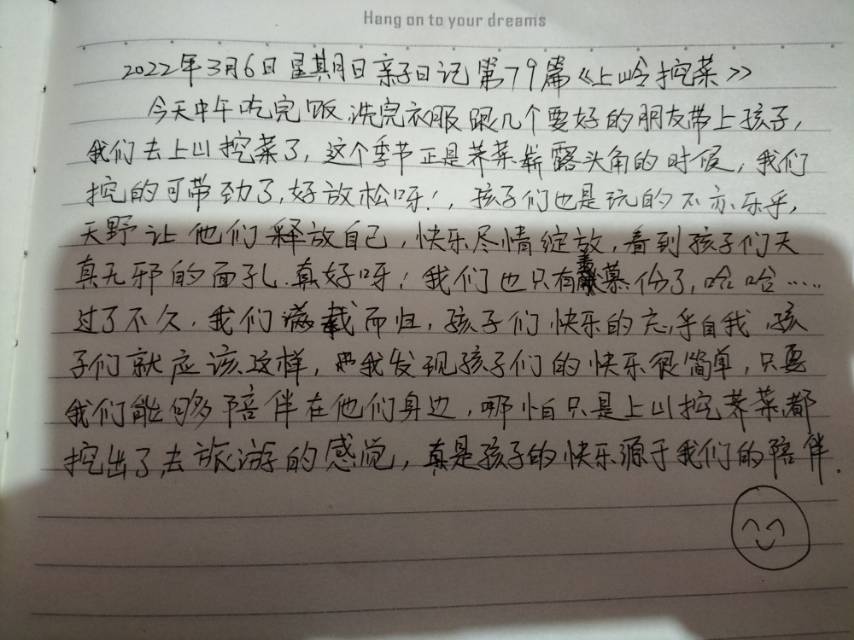 Hang on to your dreams
2022年3月6日 星期日 亲子日记 第79篇《上岭挖菜》
今天中午吃完饭.洗完衣服跟几个要好的朋友带上孩子,
我们去上山挖菜了,这个季节正是荠菜崭露头角的时候,我们
挖的可带劲了,好放松呀!,孩子们也是玩的不亦乐乎,
天野让他们释放自己,快乐尽情绽放,看到孩子们天
真无邪的面孔.真好呀!我们也只有羡慕份了,哈哈……
过了不久.我们满载而归,孩子们快乐的忘乎自我.孩
子们就应该这样,我发现孩子们的快乐很简单,只要
我们能够陪伴在他们身边,哪怕只是上山挖荠菜.都
挖出了去旅游的感觉,真是孩子的快乐源于我们的陪伴.